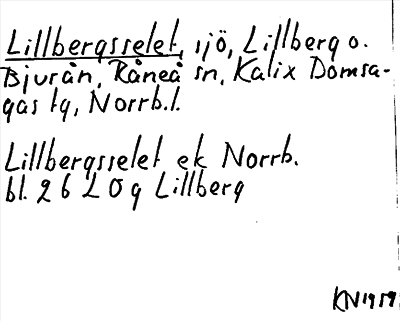 Lillbergsselet, sjö, Lillberg o.
Bjurån, Råneå sn, Kalix Domsa-
gas tg, Norrb.l.
Lillbergsselet ek Norrb.
bl. 26 L 0g Lillberg
KN1959